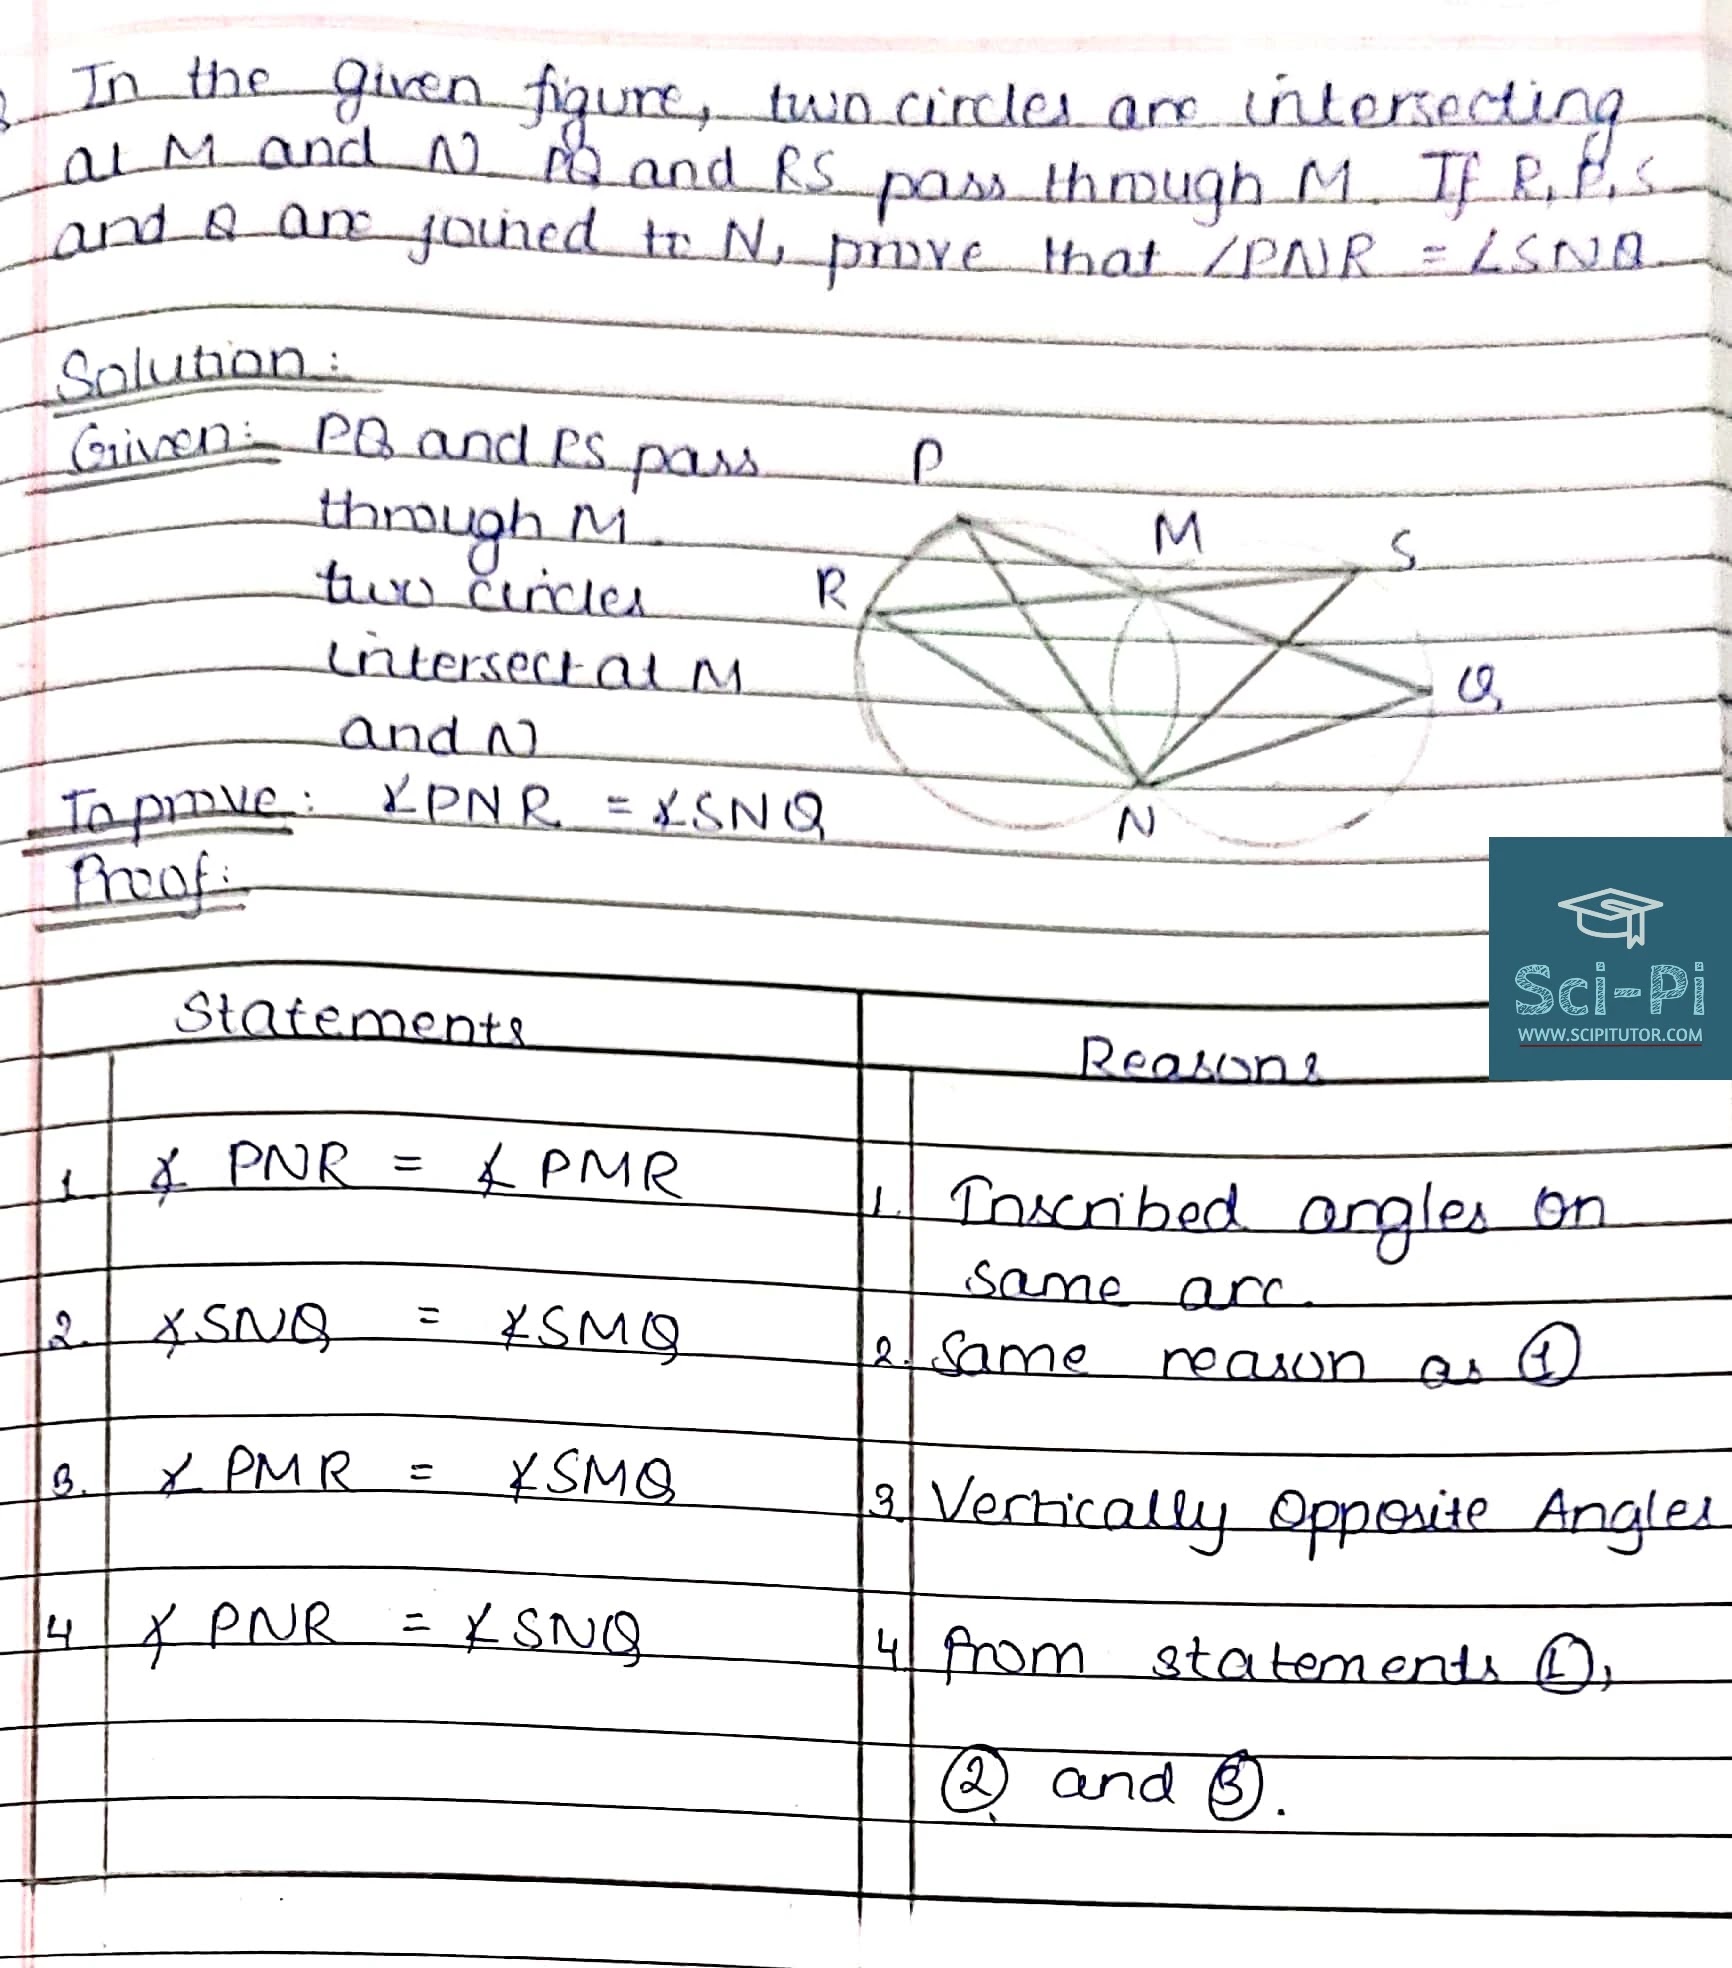 In the given figure, two circles are intersecting
at M and N PQ and RS pass through M. If R, P, S
and Q are joined to N, prove that ∠PNR = ∠SNQ
Solution:
Given: PQ and RS pass
through M.
two circles
intersect at M
and N
To prove: ∡PNR = ∡SNQ
P
M
S
R
Q
N
Proof:
Sci-Pi
WWW.SCIPITUTOR.COM
Statements
Reasons
1. ∡ PNR = ∡ PMR
1. Inscribed angles on
same arc.
2. ∡SNQ = ∡SMQ
2. Same reason as ①
3. ∡ PMR = ∡SMQ
3. Vertically Opposite Angles
4 ∡ PNR = ∡SNQ
4. from statements ①,
② and ③.